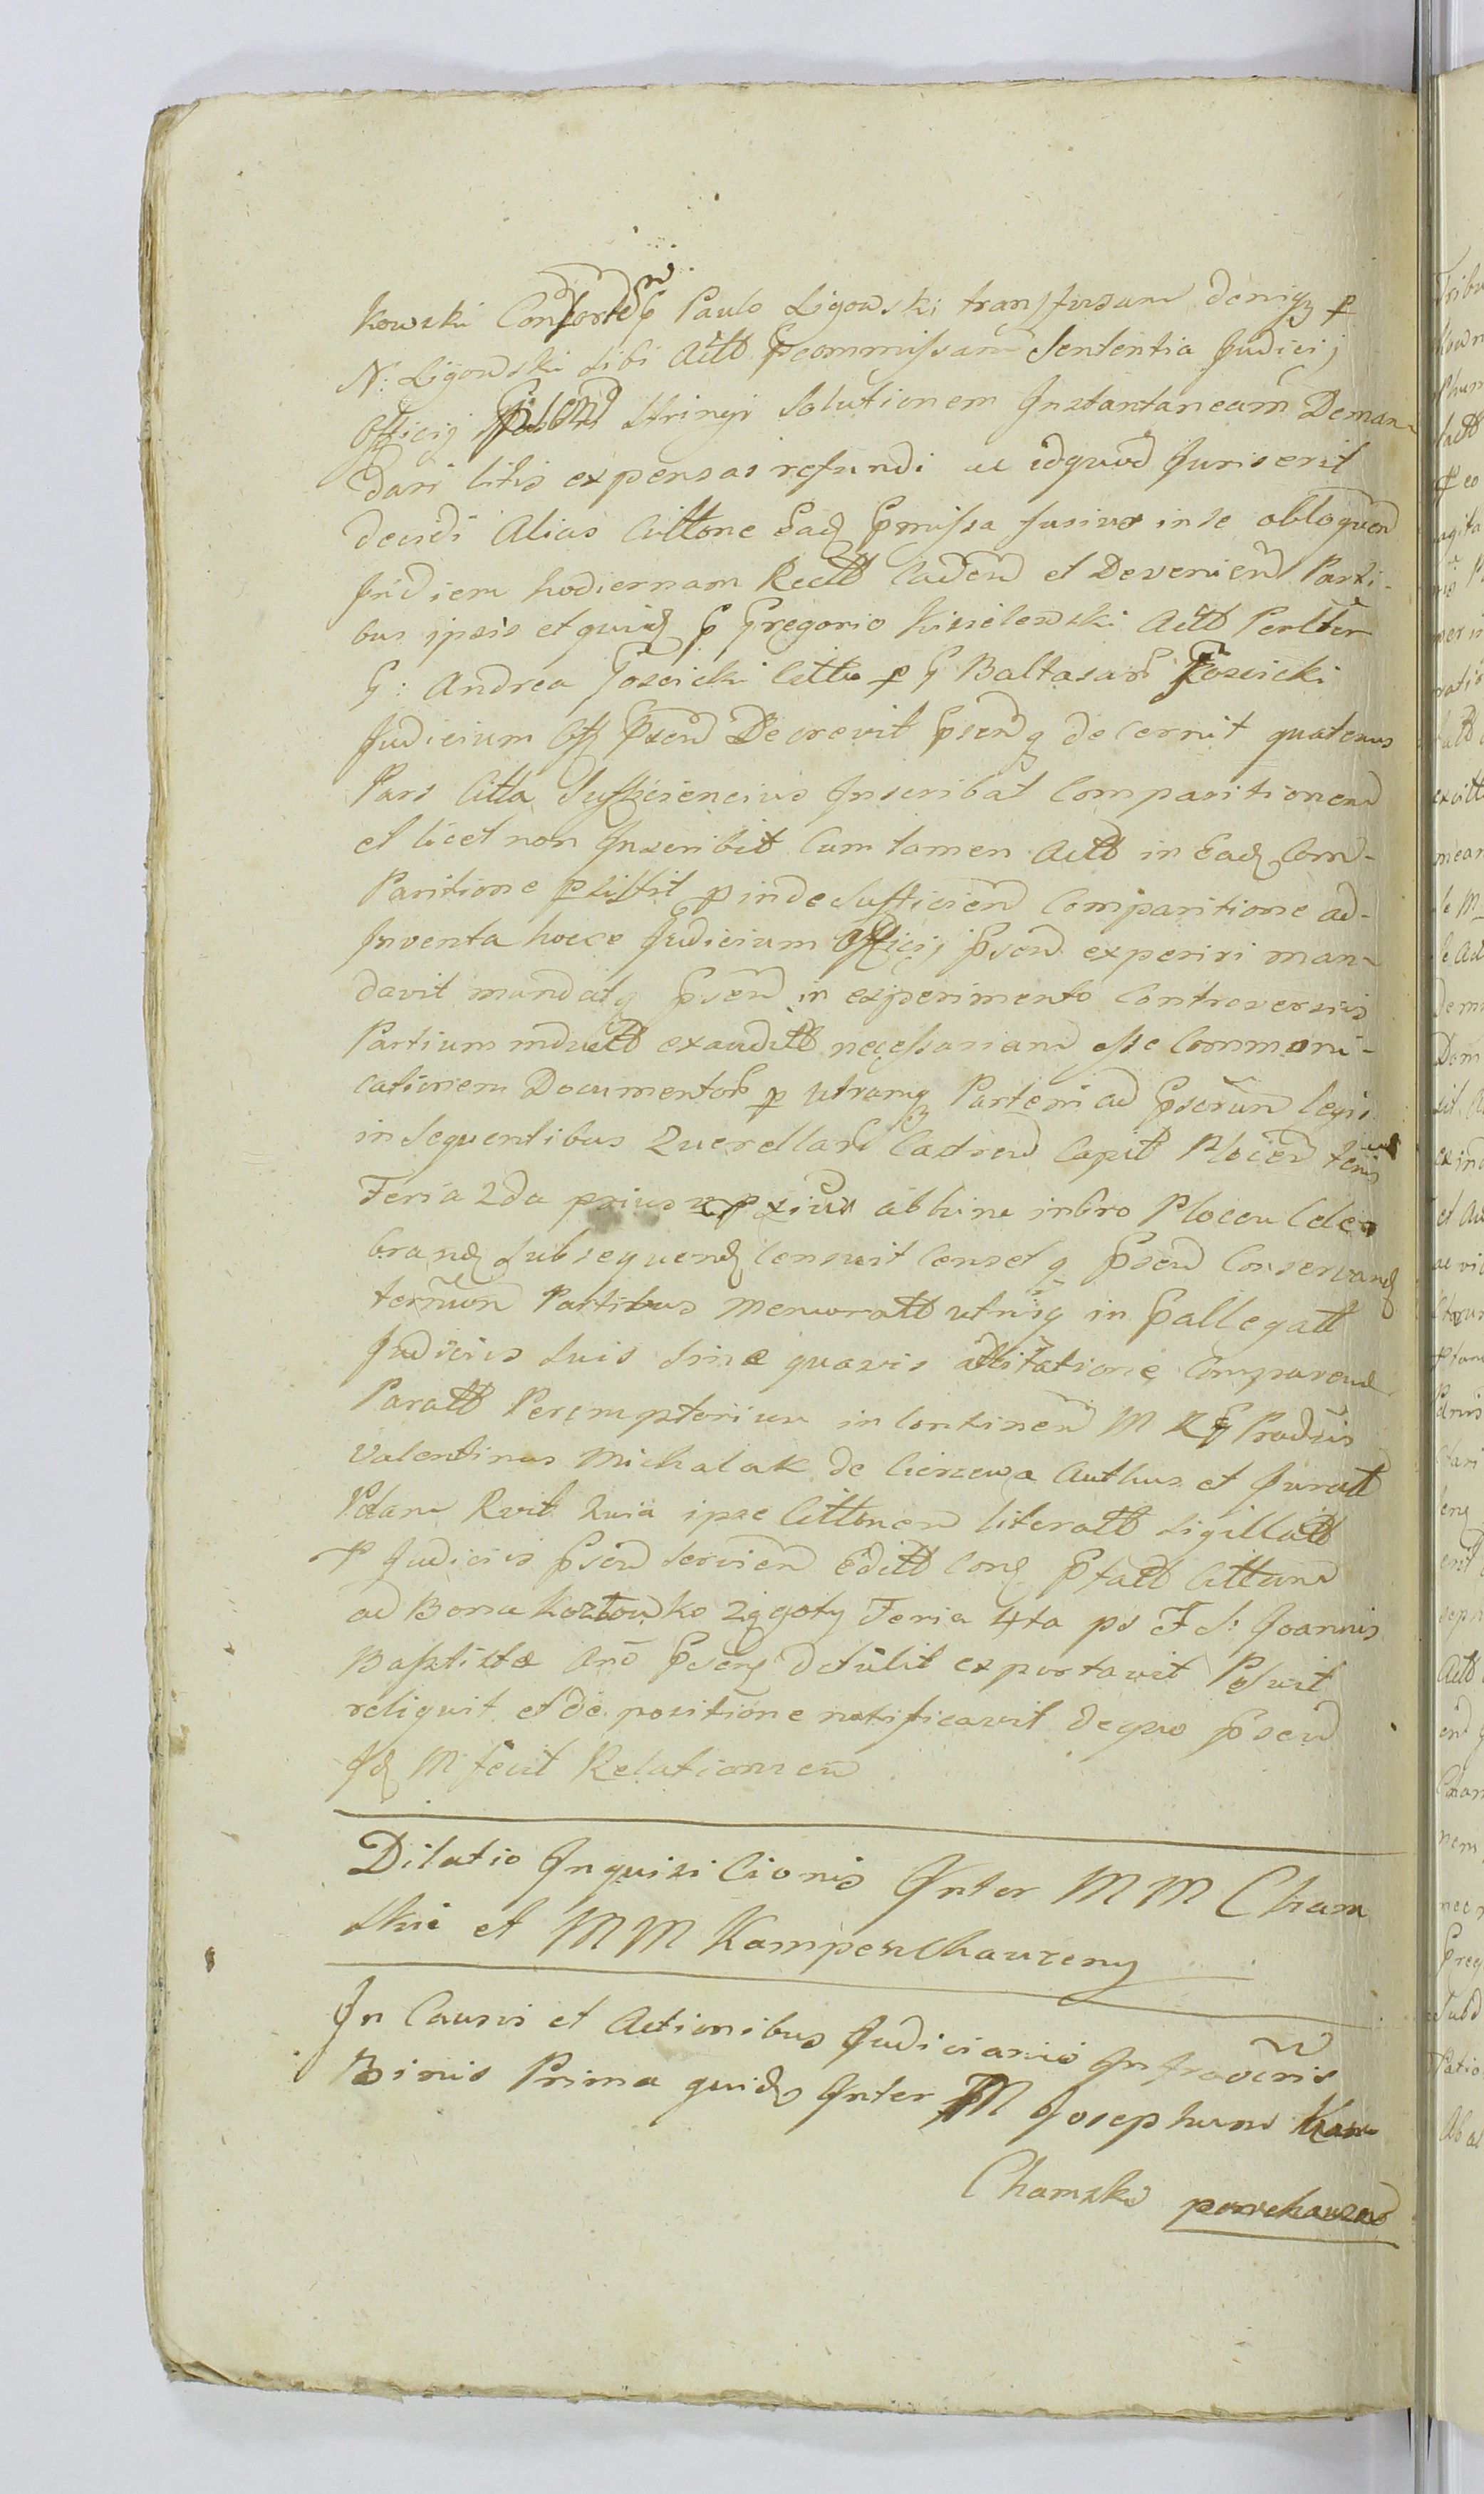 kowski Consorte G Paulo Ligowski transfusam deniqz p
N: Ligowski sibi Actto Pcommissam Sententia Judicij
Officij stringi Solutionem Instantaneam Deman-
dari litis expensas refundi ac idquod Juris erit
decidi Alias Cittone Eadq Pmissa fusius in se obloquen
In diem hodiernam Rectto Caden et Devenien Parti-
bus ipsis et quidq G Gregorio Kisielewski Actto Perltter
G: Andrea Josicki Citto p G Baltasar
Judicium Off Psen Decrevit Psenq decernit quatenus
Pars Citta Sufficiencius Inscribat Comparitionem
et licet non Inscribit Cum tamen Actto in Eadq Com-
Paritione p inde sufficien Comparitione ad-
Inventa hocce Judicium Officij Psen experiri man-
davit mandatq Psen in experimento Controversiis
Partium exauditto necessariam esse Communi-
cationem Documentor p utramqz Partem ad Legi
in sequentibus Querellar Castren Capit Plocen
Feria 2da prius abhinc in Cro Plocen Cele-
brandq subsequendq Censuit Censetq Psen Conservandq
terminum Partibus Memoratto utrisq in Pallegatt
Judiciis suis sine quavis attitatione Comparend
Paratto Peremptorium in Continen M R G
Valentinus Michalak de Cierzewa Authus et Juratt
Rvit Quia ipse Cittonem literatto sigillatto
p Judiciis Psen servien Editto Conq Ptatto Cittum
ad Bona Kozłowko Zęgoty Feria 4ta ps F S: Joannis
Baptistæ Ano Psenq detulit exportavit Posuit
reliquit et de positione notificavit de quo Psen
Idq M fecit Relationem
Dilatio Inquisicionis Inter M M Cham
skie et M M Kampenchauzeny
In Causis et Actionibus Judiciariis
Binis Prima quidq Inter M Josephum Kam
Chamski penchauzen